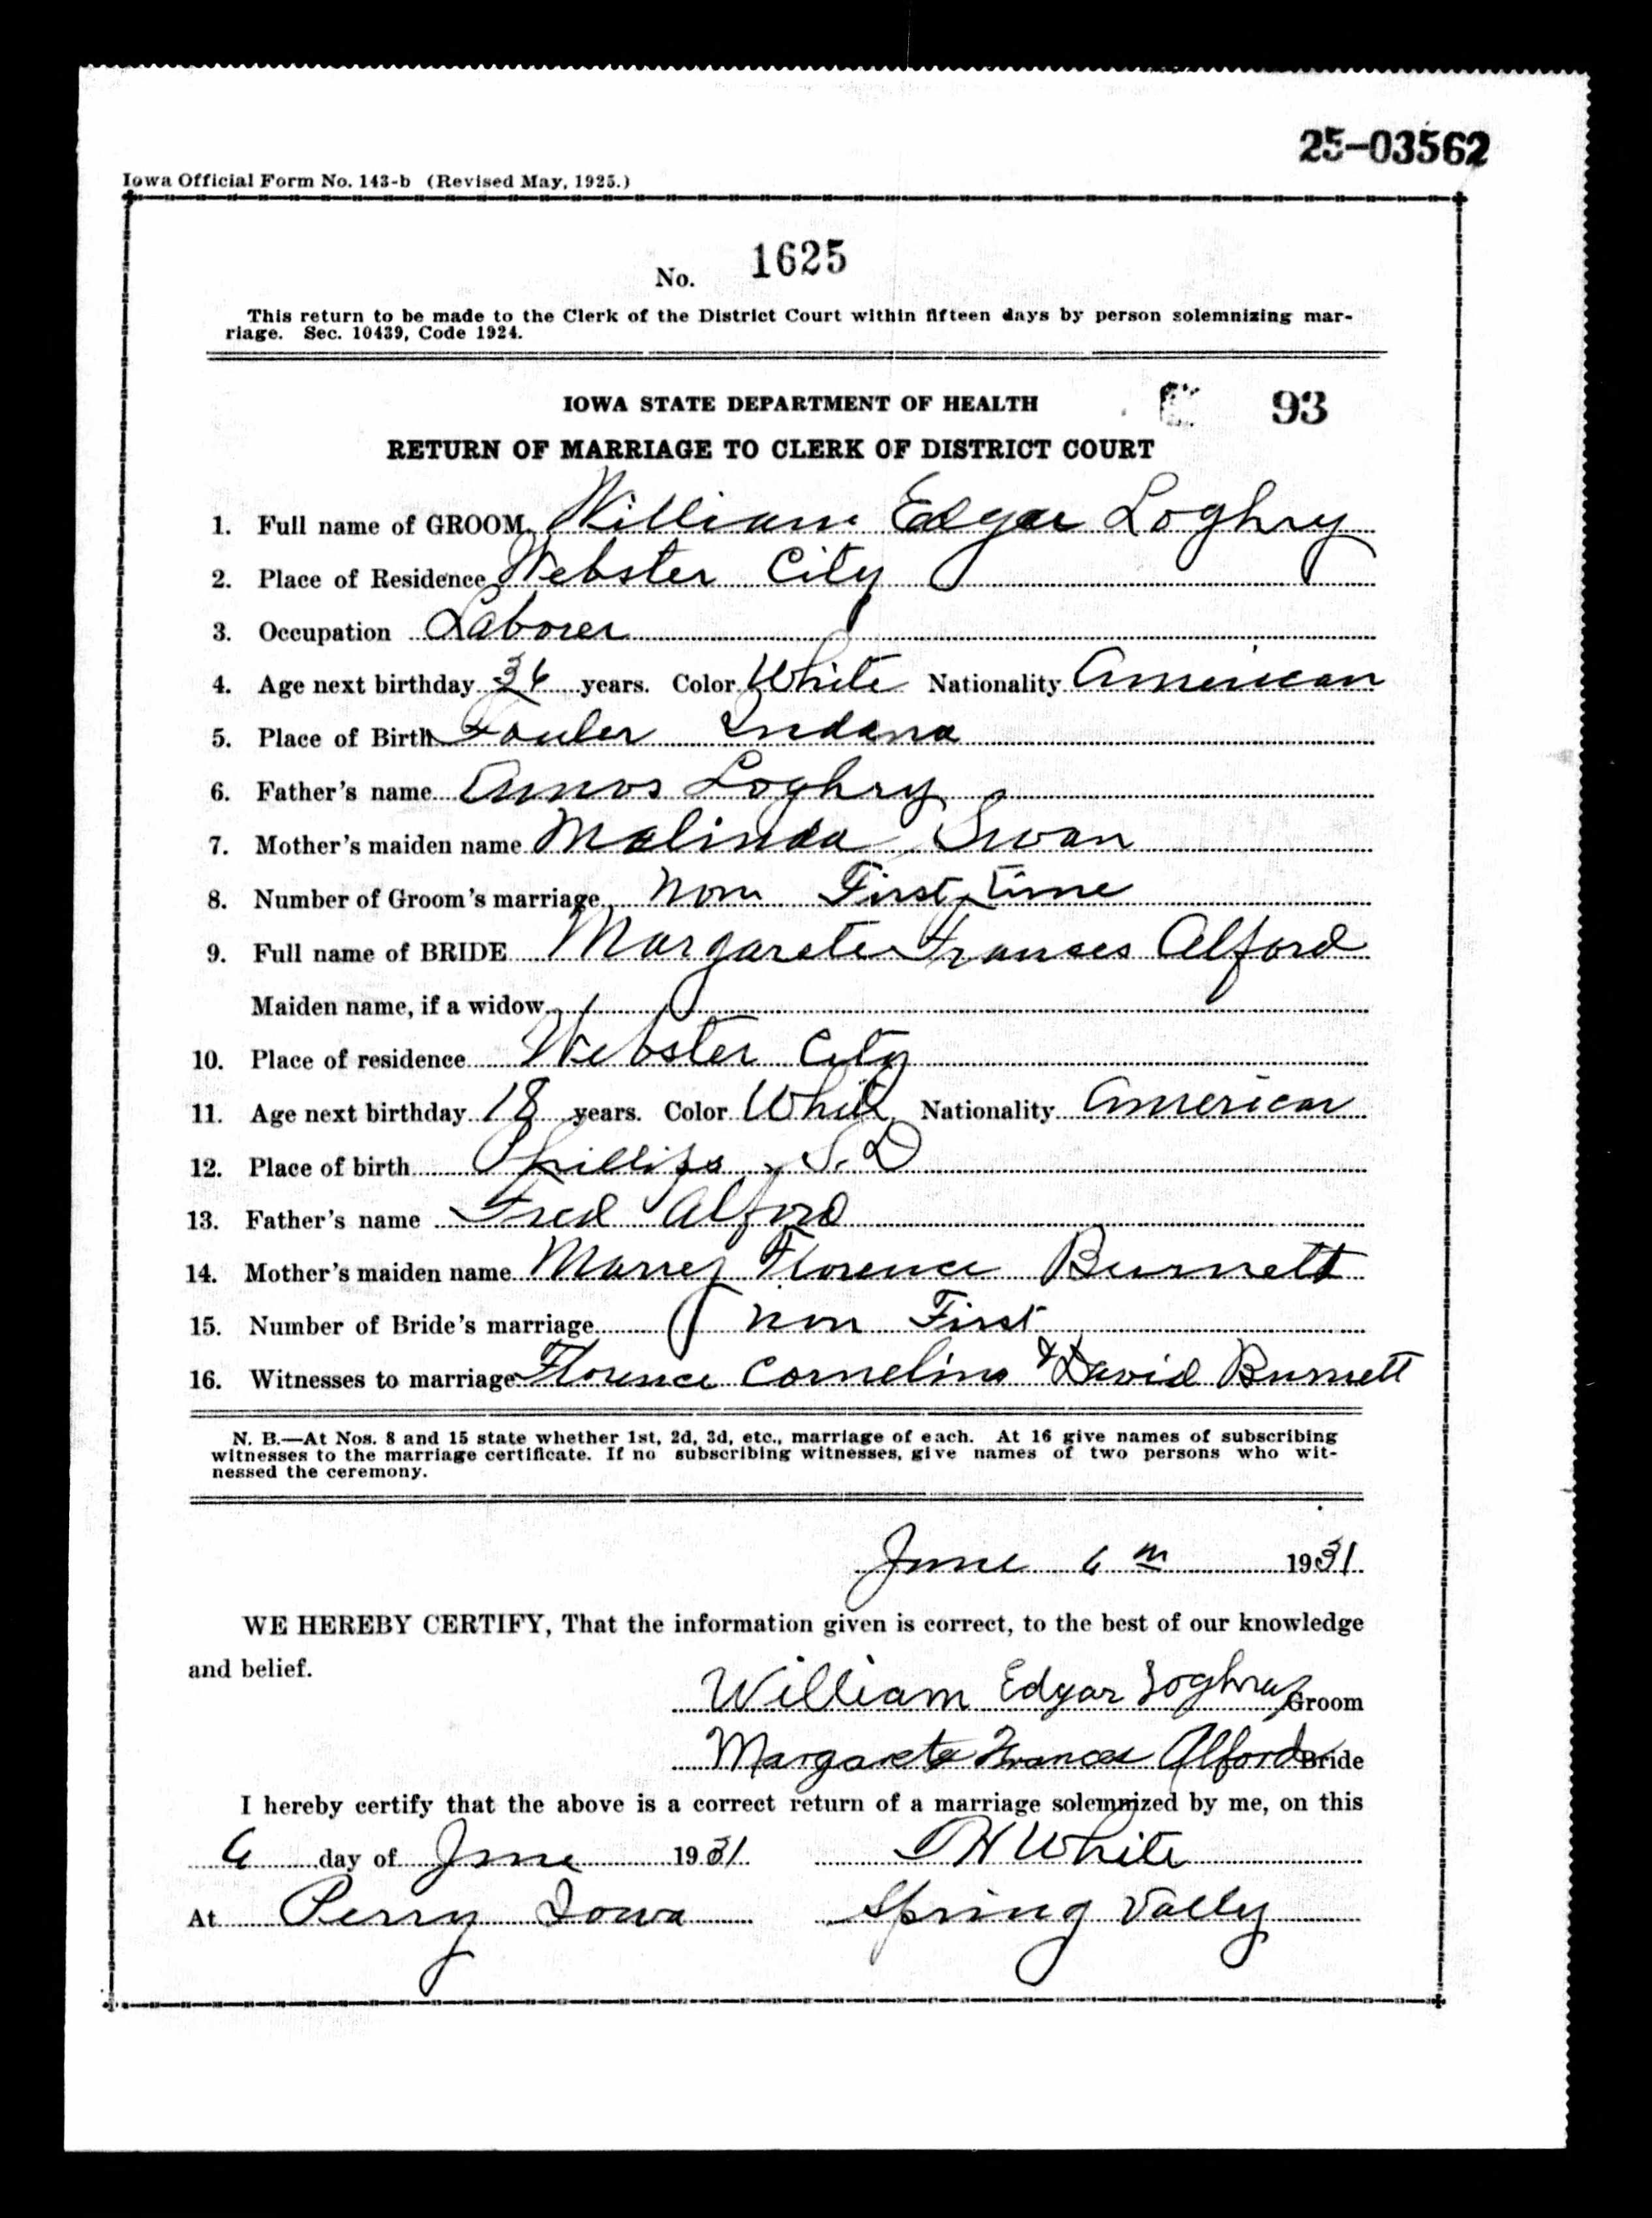 25-03562
Iowa Official Form No. 143-b (Revised May, 1925.)
No. 1625
This return to be made to the Clerk of the District Court within fifteen days by person solemnizing mar-
riage. Sec. 10439, Code 1924.
IOWA STATE DEPARTMENT OF HEALTH 93
RETURN OF MARRIAGE TO CLERK OF DISTRICT COURT
1. Full name of GROOM William Edgar Loghry
2. Place of Residence Webster City
3. Occupation Laborer
4. Age next birthday 36 years. Color White Nationality American
5. Place of Birth Fouler Indana
6. Father's name Amos Loghry
7. Mother's maiden name Malinda Swan
8. Number of Groom's marriage First time
9. Full name of BRIDE Margarete Franses Alford
Maiden name, if a widow
10. Place of residence Webster City
11. Age next birthday 18 years. Color White Nationality American
12. Place of birth Phillips S.D
13. Father's name Fred Alford
14. Mother's maiden name Marrey Florence Burnett
15. Number of Bride's marriage First
16. Witnesses to marriage Florence Cornelius & David Burnett
N. B.—At Nos. 8 and 15 state whether 1st, 2d, 3d, etc., marriage of each. At 16 give names of subscribing
witnesses to the marriage certificate. If no subscribing witnesses, give names of two persons who wit-
nessed the ceremony.
June 6 1931
WE HEREBY CERTIFY, That the information given is correct, to the best of our knowledge
and belief.
William Edgar Loghry Groom
Margarete Frances Alford Bride
I hereby certify that the above is a correct return of a marriage solemnized by me, on this
6 day of June 1931 White
At Perry Iowa Spring Vally